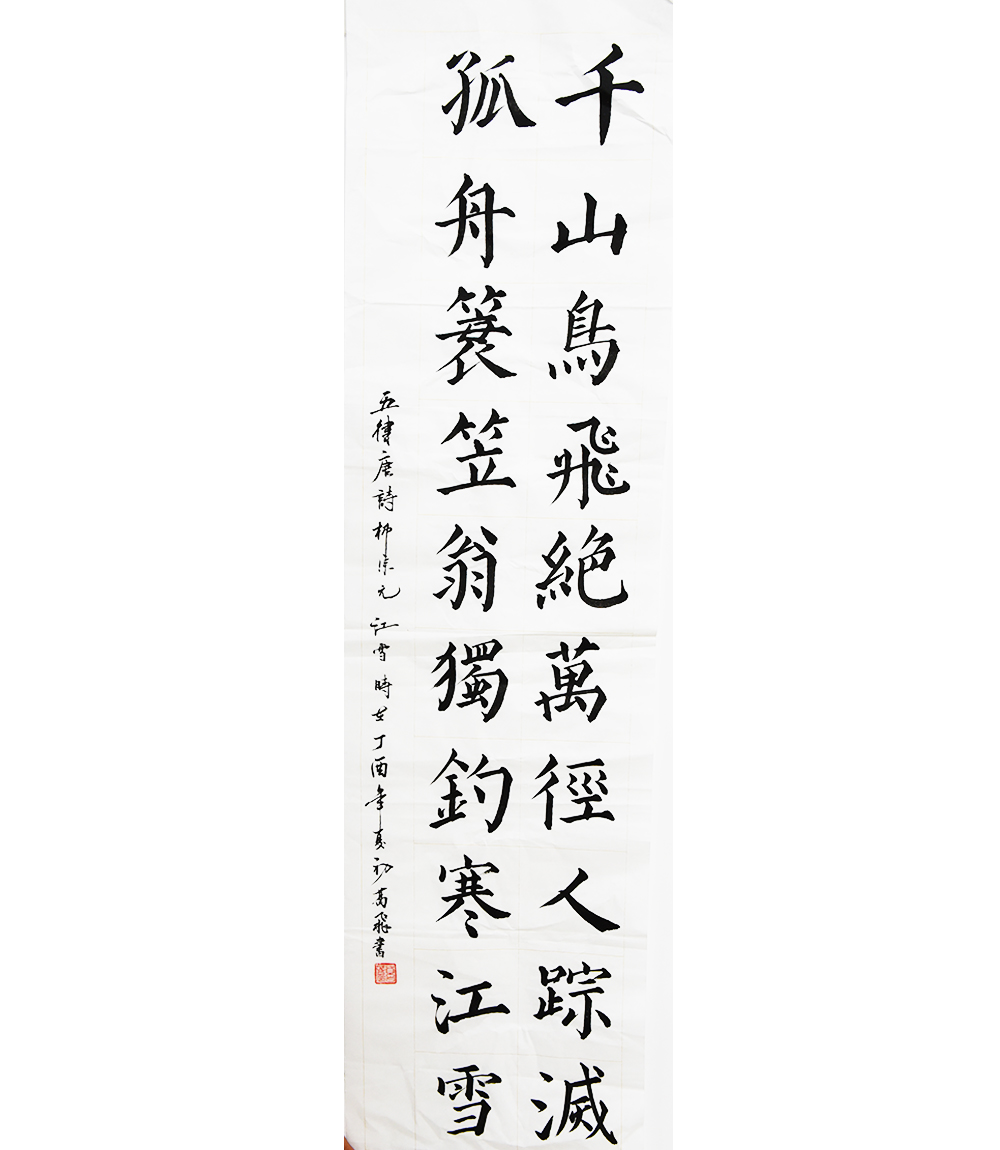 千山鳥飛絕萬徑人踪滅
孤舟簑笠翁獨釣寒江雪
五律唐詩柳宗元江雪時在丁酉年夏初高飛書